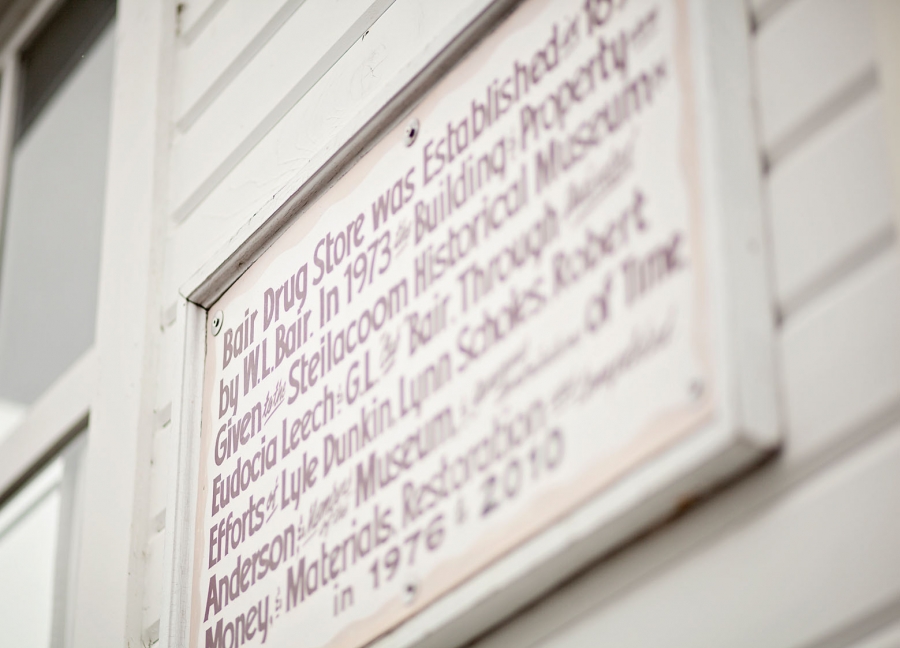 Bair Drug Store was Established in 18
by W.L. Bair. In 1973 the Building & Property
Given to the Steilacoom Historical Museum
Eudocia Leech & G.L. Bair. Through
Efforts of Lyle Dunkin. Lynn Scholes. Robert
Anderson & Members of the Museum, of Time
Money, & Materials. Restoration Completed
in 1976 & 2010